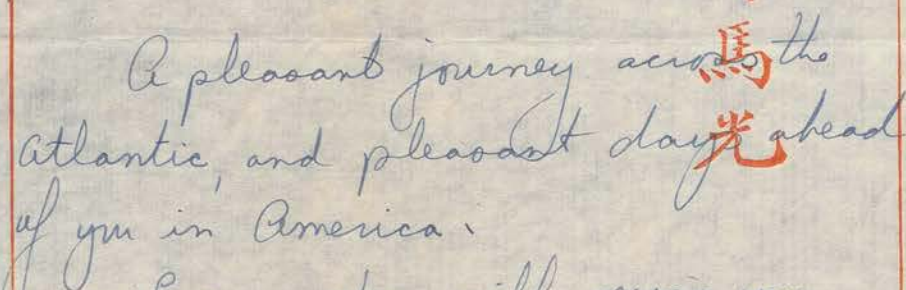 A pleasant journey across the
Atlantic, and pleasant days ahead
of you in America.
馬光